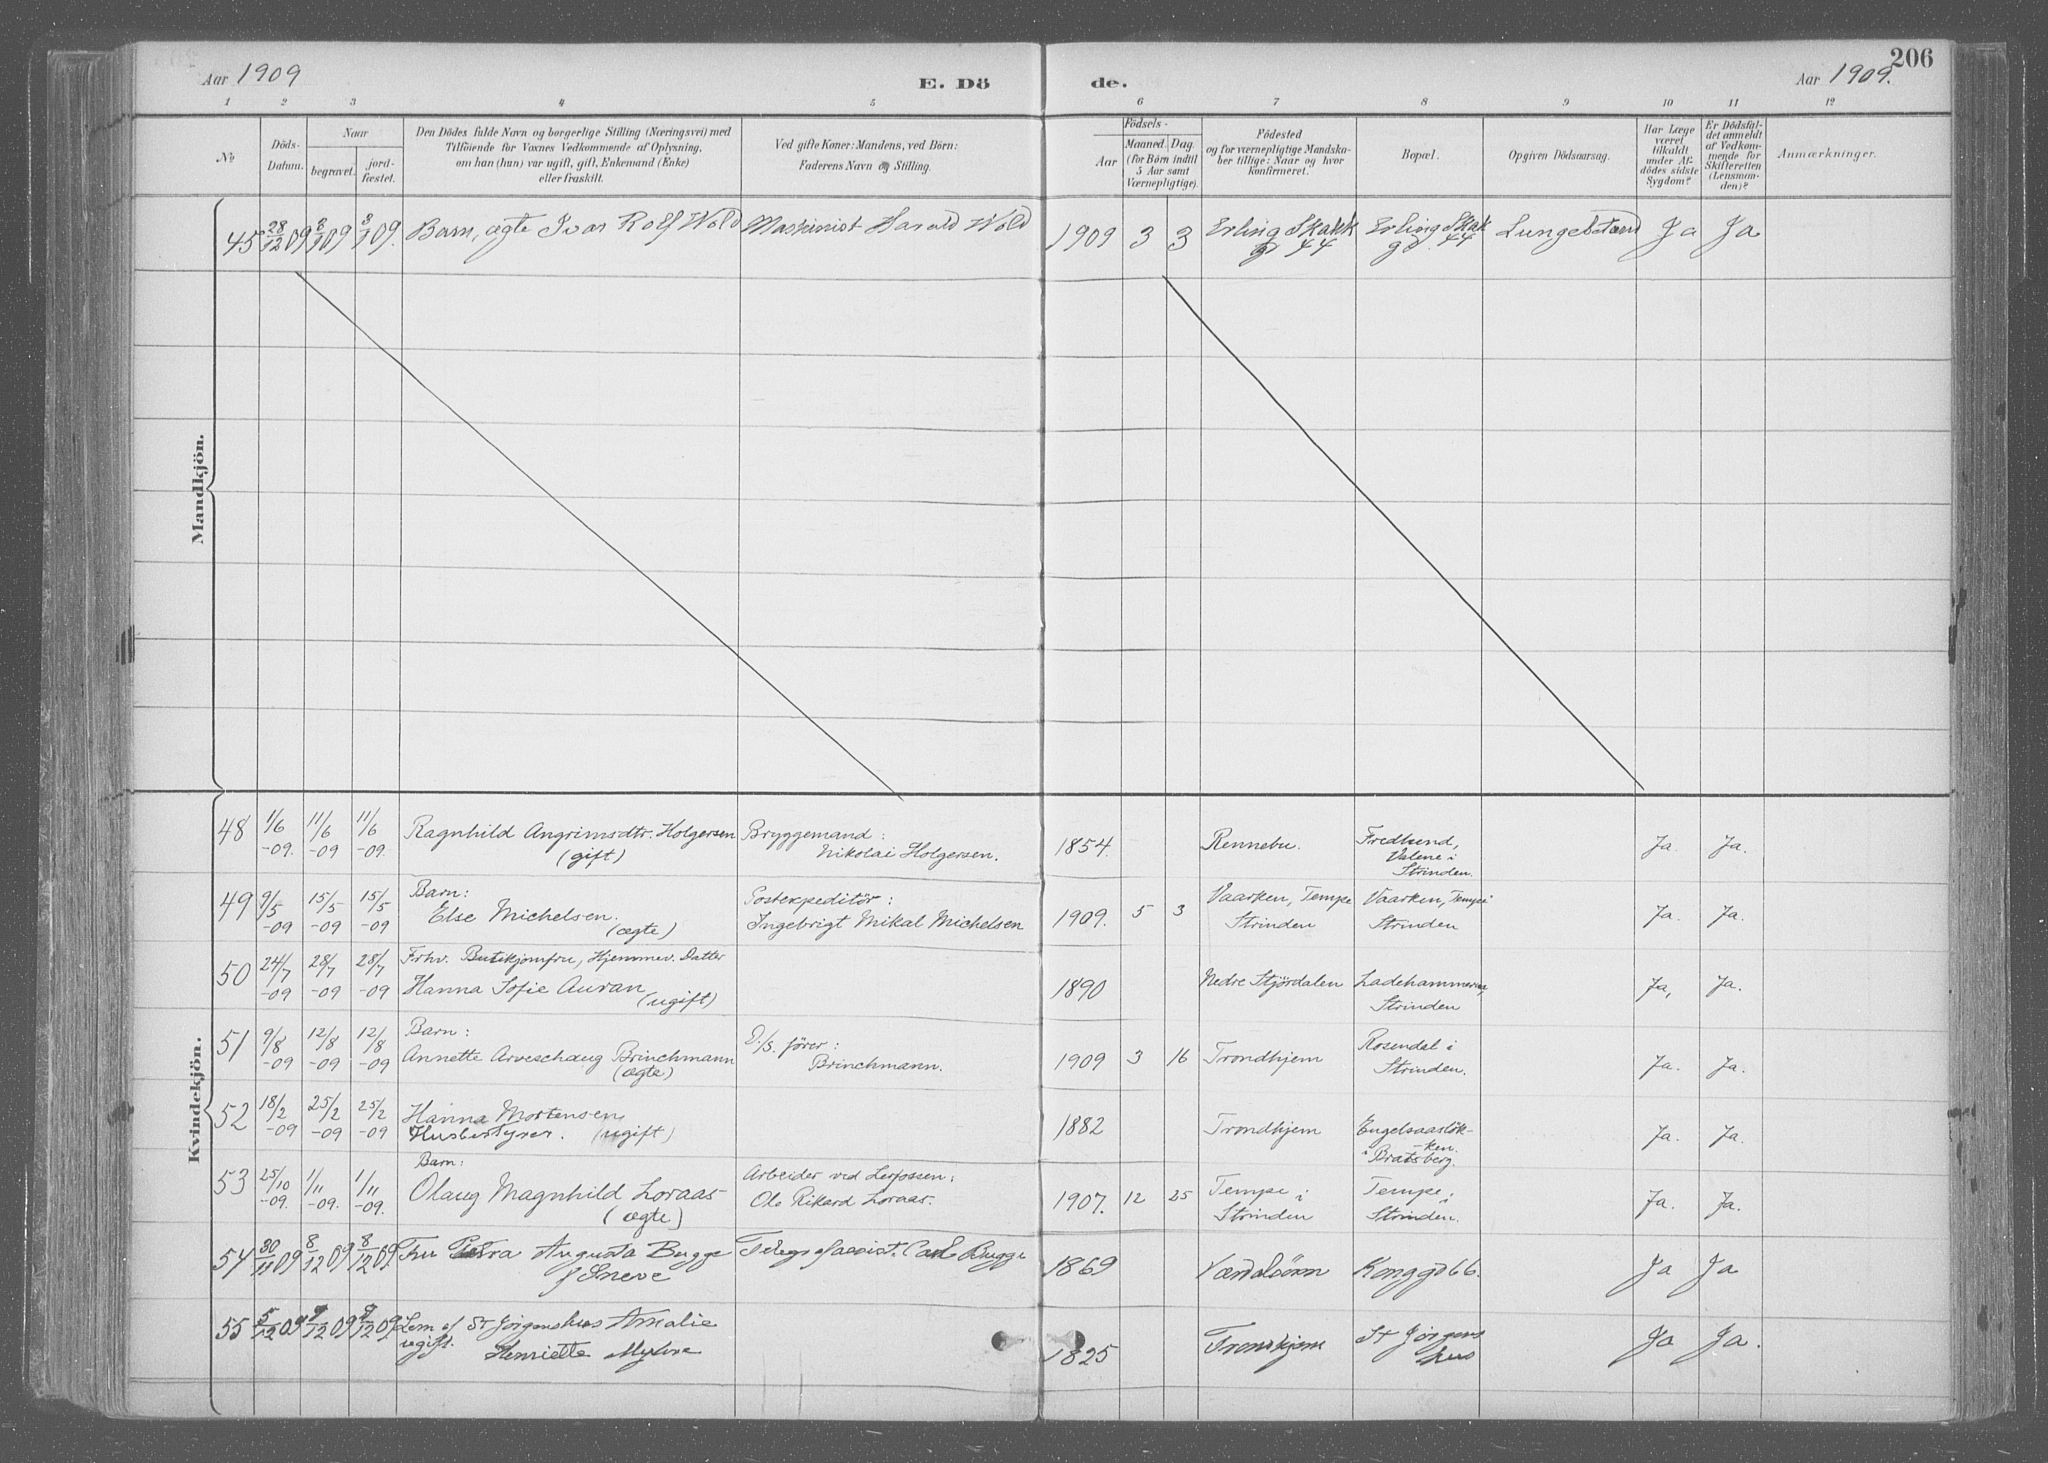 206
Aar 1909
E. Dö
de.
Aar 1909.
1 2 3 4 5 6 7 8 9 10 11 12
№
Döds-
Datum.
Naar
begravet.
jord-
fæstet.
Den Dödes fulde Navn og borgerlige Stilling (Næringsvei) med
Tilföiende for Voxnes Vedkommende af Oplysning,
om han (hun) var ugift, gift, Enkemand (Enke)
eller fraskilt.
Ved gifte Koner: Mandens, ved Börn:
Faderens Navn og Stilling.
Födsels-
Aar
Maaned.
Dag.
(for Börn indtil
5 Aar samt
Værnepligtige).
Födested
og for værnepligtige Mandska-
ber tillige: Naar og hvor
konfirmeret.
Bopæl.
Opgiven Dödsaarsag.
Har Læge
været
tilkaldt
under Af-
dödes sidste
Sygdom?
Er Dödsfal-
det anmeldt
af Vedkom-
mende for
Skifteretten
(Lensman-
den)?
Anmærkninger.
Mandkjön.
45 28/12 09 8/1 09 8/1 09. Barn, ægte Ivar Rolf Wold Maskinist Harald Wold 1909 3 3 Erling Skakk Erling Skak Lungebetænd Ja Ja
gd 44 gd. 44
Kvindekjön.
48 1/6 11/6 11/6 Ragnhild Angrimsdtr. Holgersen Bryggemand: 1854. Rennebu. Fredlund, Ja. Ja.
-09. -09 -09. (gift) Nikolai Holgersen. Valene i
Strinden.
49 9/5 15/5 15/5 Barn: Postexpeditör: Vaarken, Tempe Vaarken, Tempe i
-09 -09 -09 Else Michelsen. Ingebrigt Mikal Michelsen 1909. 5 3 Strinden Strinden Ja. Ja.
(ægte)
50 24/7 28/7 28/7 Frhv. Butikjomfru, Hjemmev. Datter
-09 -09 -09 Hanna Sofie Auran 1890 Nedre Stjördalen Ladehammeren, Ja, Ja.
(ugift) Strinden
51 9/8 12/8 12/8 Barn: D/S. förer: Rosendal i
-09 -09 -09 Annette Arveschoug Brinchmann Brinchmann. 1909 3 16 Trondhjem Strinden. Ja. Ja.
(ægte)
52 18/2 25/2 25/2 Hanna Mortensen 1882 Trondhjem Engelsaaslök- Ja. Ja.
-09 -09 -09 Husbestyrer. (ugift) ken.
i Bratsberg.
53 25/10 1/11 1/11 Barn: Arbeider ved Lerfossen:
-09. -09. -09. Olaug Magnhild Loraas Ole Rikard Loraas. 1907. 12 25 Tempe i Tempe i Ja. Ja.
(ægte) Strinden Strinden.
54 30/11 09 8/12 09 8/12 09 Fru Petra Augusta Bugge Telegrafassist. Carl Bugge 1869 Værdalsören Konggd 66. Ja Ja
f Sneve
55 5/12 09 9/12 09 8/12 09 Lem af St Jörgenshus Amalie 1825 Trondhjem St Jörgens Ja Ja.
ugift. Henriette hus